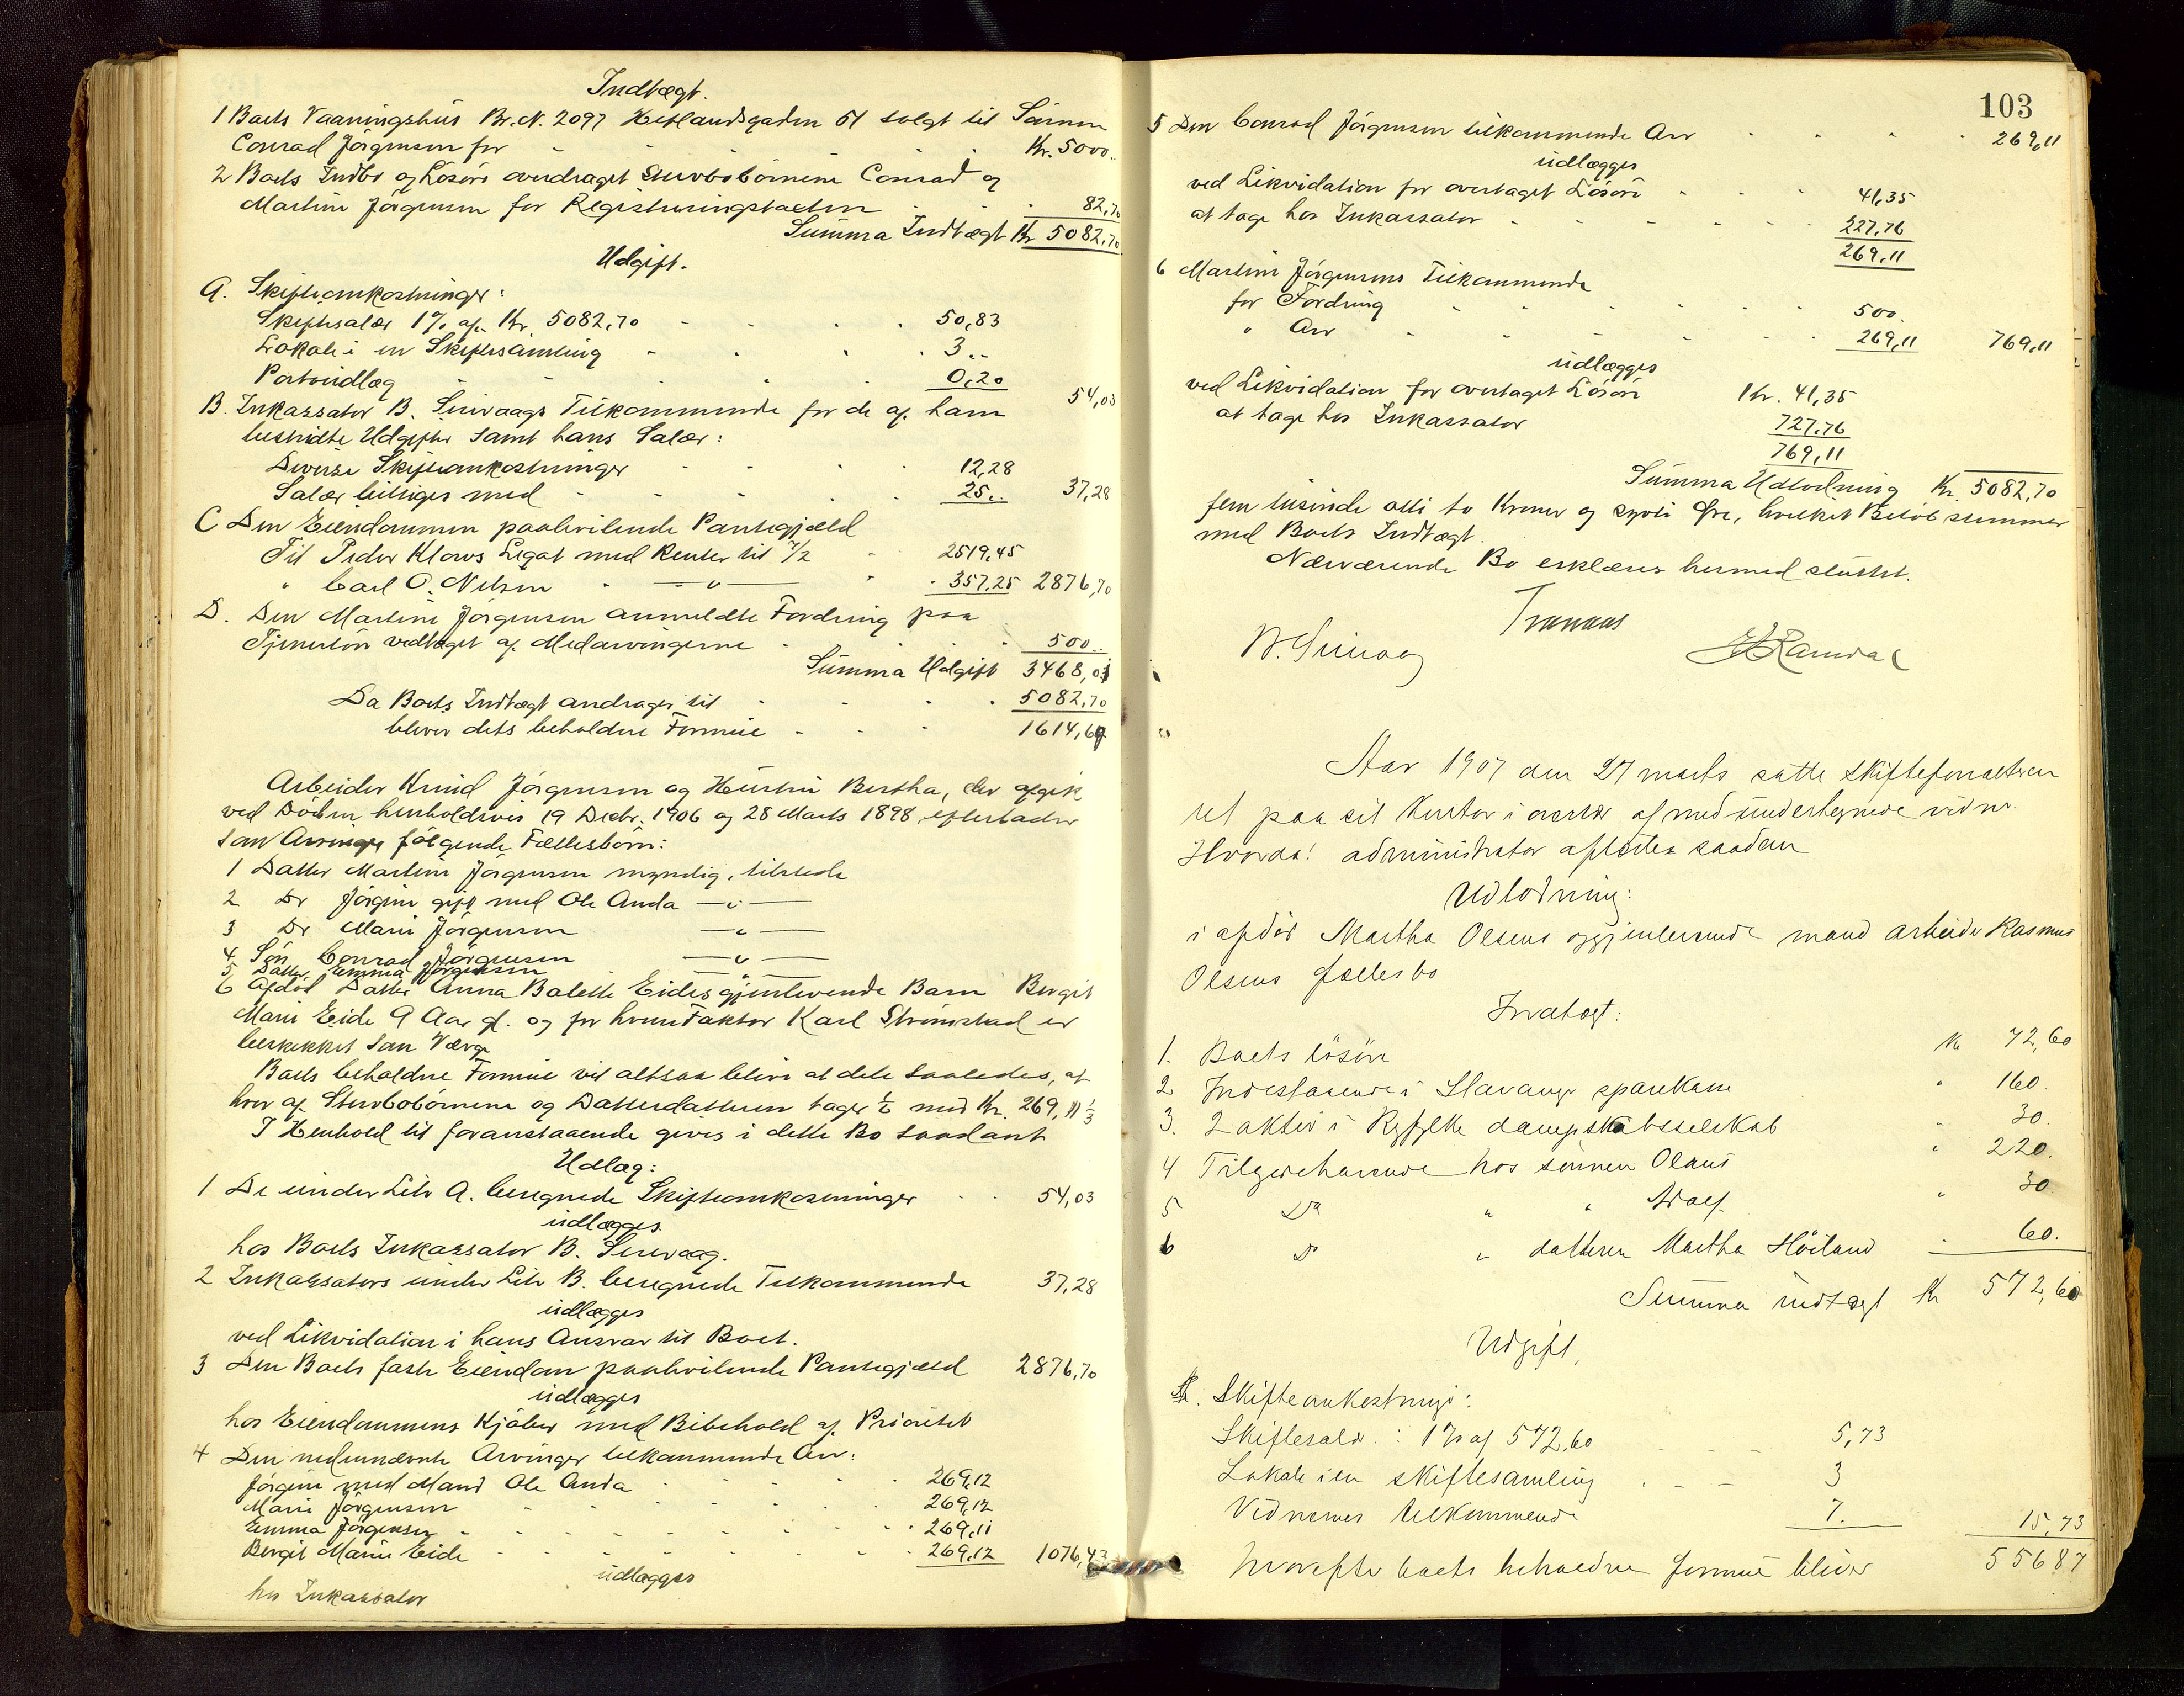 Indtægt.
1 Boets Vaaningshus Br. N. 2097 Hetlandsgaden 51 solgt til Sønnen
Conrad Jørgensen for Kr. 5000.
2 Boets Indbo og Løsøre overdraget Stervbobørnene Conrad og
Martine Jørgensen for Registreringstaxten 82,70
Summa Indtægt Kr 5082,70
Udgift.
A. Skifteomkostninger:
Skiftesalær 1% af Kr. 5082,70 50,83
Lokale i en Skiftesamling 3..
Portoudlæg 0,20 54,03
B. Inkassator B. Sunvaags Tilkommende for de af ham
bestridte Udgifter samt hans Salær:
Diverse Skifteomkostninger 12,28
Salær billiges med 25.. 37,28
C Den Eiendommen paahvilende Pantegjæld
Til Peder Klows Legat med Renter til 7/2 2519,45
" Carl O. Nilsen — " — 357,25 2876,70
D. Den Martine Jørgensen anmeldte Fordring paa
Tjenerløn vedtaget af Medarvingerne 500..
Summa Udgift 3468,01
Da Boets Indtægt andrager til 5082,70
bliver dets beholdne Formue 1614,69
Arbeider Knud Jørgensen og Hustru Bertha, der afgik
ved Døden henholdsvis 19 Decbr. 1906 og 28 Marts 1898, efterlader
som Arvinger følgende Fællesbørn:
1 Datter Martine Jørgensen myndig, tilstede
2 Do Jørgine gift med Ole Anda — " —
3 Do Marie Jørgensen — " —
4. Søn Conrad Jørgensen — " —
5. Datter Emma Jørgensen — " —
6 Afdød Datter Anna Bolette Eides gjenlevende Barn Bergit
Marie Eide 9 Aar gl. og for hvem Faktor Karl Strømstad er
beskikket som Værge
Boets beholdne Formue vil altsaa blive at dele saaledes, at
hver af Stervbobørnene og Datterdatteren tager 1/6 med Kr. 269,11 1/3
I Henhold til foranstaaende gives i dette Bo saadant
Udlæg:
1 De under Litr A. beregnede Skifteomkostninger 54,03
udlægges
hos Boets Inkassator B. Sunvaag.
2 Inkassators under Litr B. beregnede Tilkommende 37,28
udlægges
ved Likvidation i hans Ansvar til Boet.
3 Den Boets faste Eiendom paahvilende Pantegjæld 2876,70
udlægges
hos Eiendommens Kjøber med Bibehold af Prioritet
4 Den nedennævnte Arvinger tilkommende Arv:
Jørgine med Mand Ole Anda 269,12
Marie Jørgensen 269,12
Emma Jørgensen 269,11
Bergit Marie Eide 269,12 1076,47
udlægges
hos Inkassator
103
5 Den Conrad Jørgensen tilkommende Arv 269,11
udlægges
ved Likvidation for overtaget Løsøre 41,35
at tage hos Inkassator 227,76
269,11
6 Martine Jørgensens Tilkommende
for Fordring 500.
" Arv 269,11 769,11
udlægges
ved Likvidation for overtaget Løsøre Kr. 41,35
at tage hos Inkassator 727,76
769,11
Summa Udlodning Kr. 5082,70
fem tusinde otti to Kroner og sytti Øre, hvilket Beløb stemmer
med Boets Indtægt.
Nærværende Bo erklæres hermed sluttet.
Tranaas
Aar 1907 den 27 marts satte skifteforvalteren
ret paa sit Kontor i overvær af medundertegnede vidner.
Hvorda! administrator afsluttes saadan
Udlodning:
i afdød Martha Olsens og gjenlevende mand arbeider Rasmus
Olsens fællesbo
Indtægt:
1. Boets løsøre Kr 72,60
2 Indestaaende i Stavanger sparekasse " 160.
3. 2 aktier i Ryfylke dampskibsselskab " 30.
4 Tilgodehavende hos sønnen Olaus " 220.
5 Do " " Adolf " 30.
6 Do " datteren Martha Høiland " 60.
Summa indtægt Kr 572,60
Udgift.
A. Skifteomkostninger:
Skiftesalær: 1% af 572,60 5,73
Lokale i en skiftesamling 3
Vidnernes tilkommende 7. 15,73
hvorefter boets beholdne formue bliver 556 87